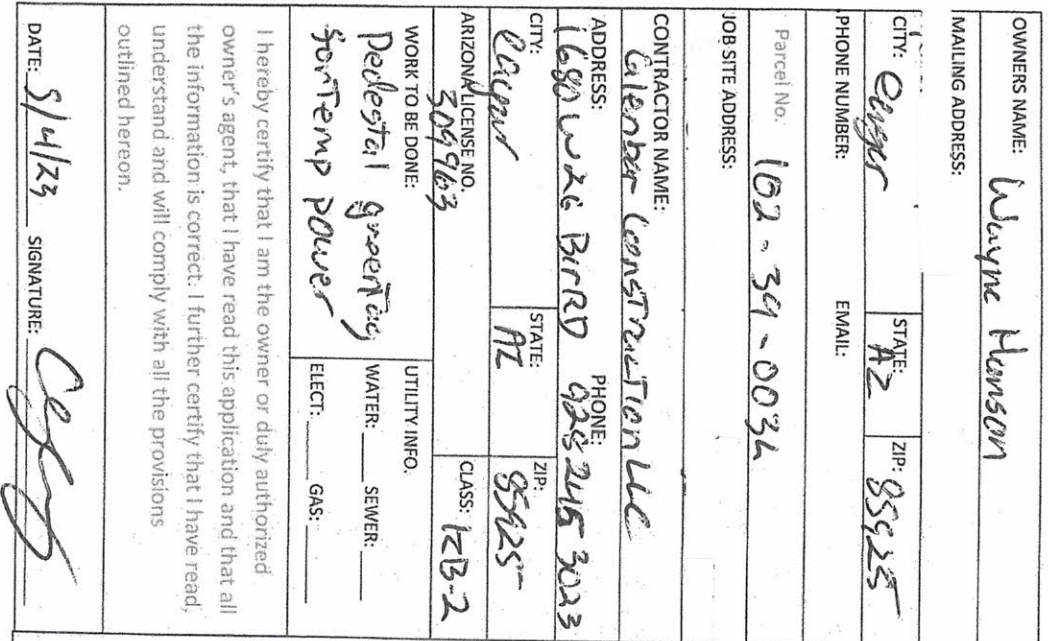 OWNERS NAME: Wayne Hanson
MAILING ADDRESS:
CITY: STATE: AZ ZIP: 85925
PHONE NUMBER: EMAIL:
Parcel No:
JOB SITE ADDRESS:
CONTRACTOR NAME:
Glenbar Construction LLC
ADDRESS: PHONE:
1680 W 26 928 245 3023
CITY: STATE: ZIP:
AZ 85925
ARIZONA LICENSE NO. CLASS: KB-2
309963
WORK TO BE DONE: UTILITY INFO.
Pedestal green Tag WATER: SEWER:
for Temp power ELECT: GAS:
I hereby certify that I am the owner or duly authorized
owner's agent, that I have read this application and that all
the information is correct. I further certify that I have read,
understand and will comply with all the provisions
outlined hereon.
DATE: SIGNATURE: